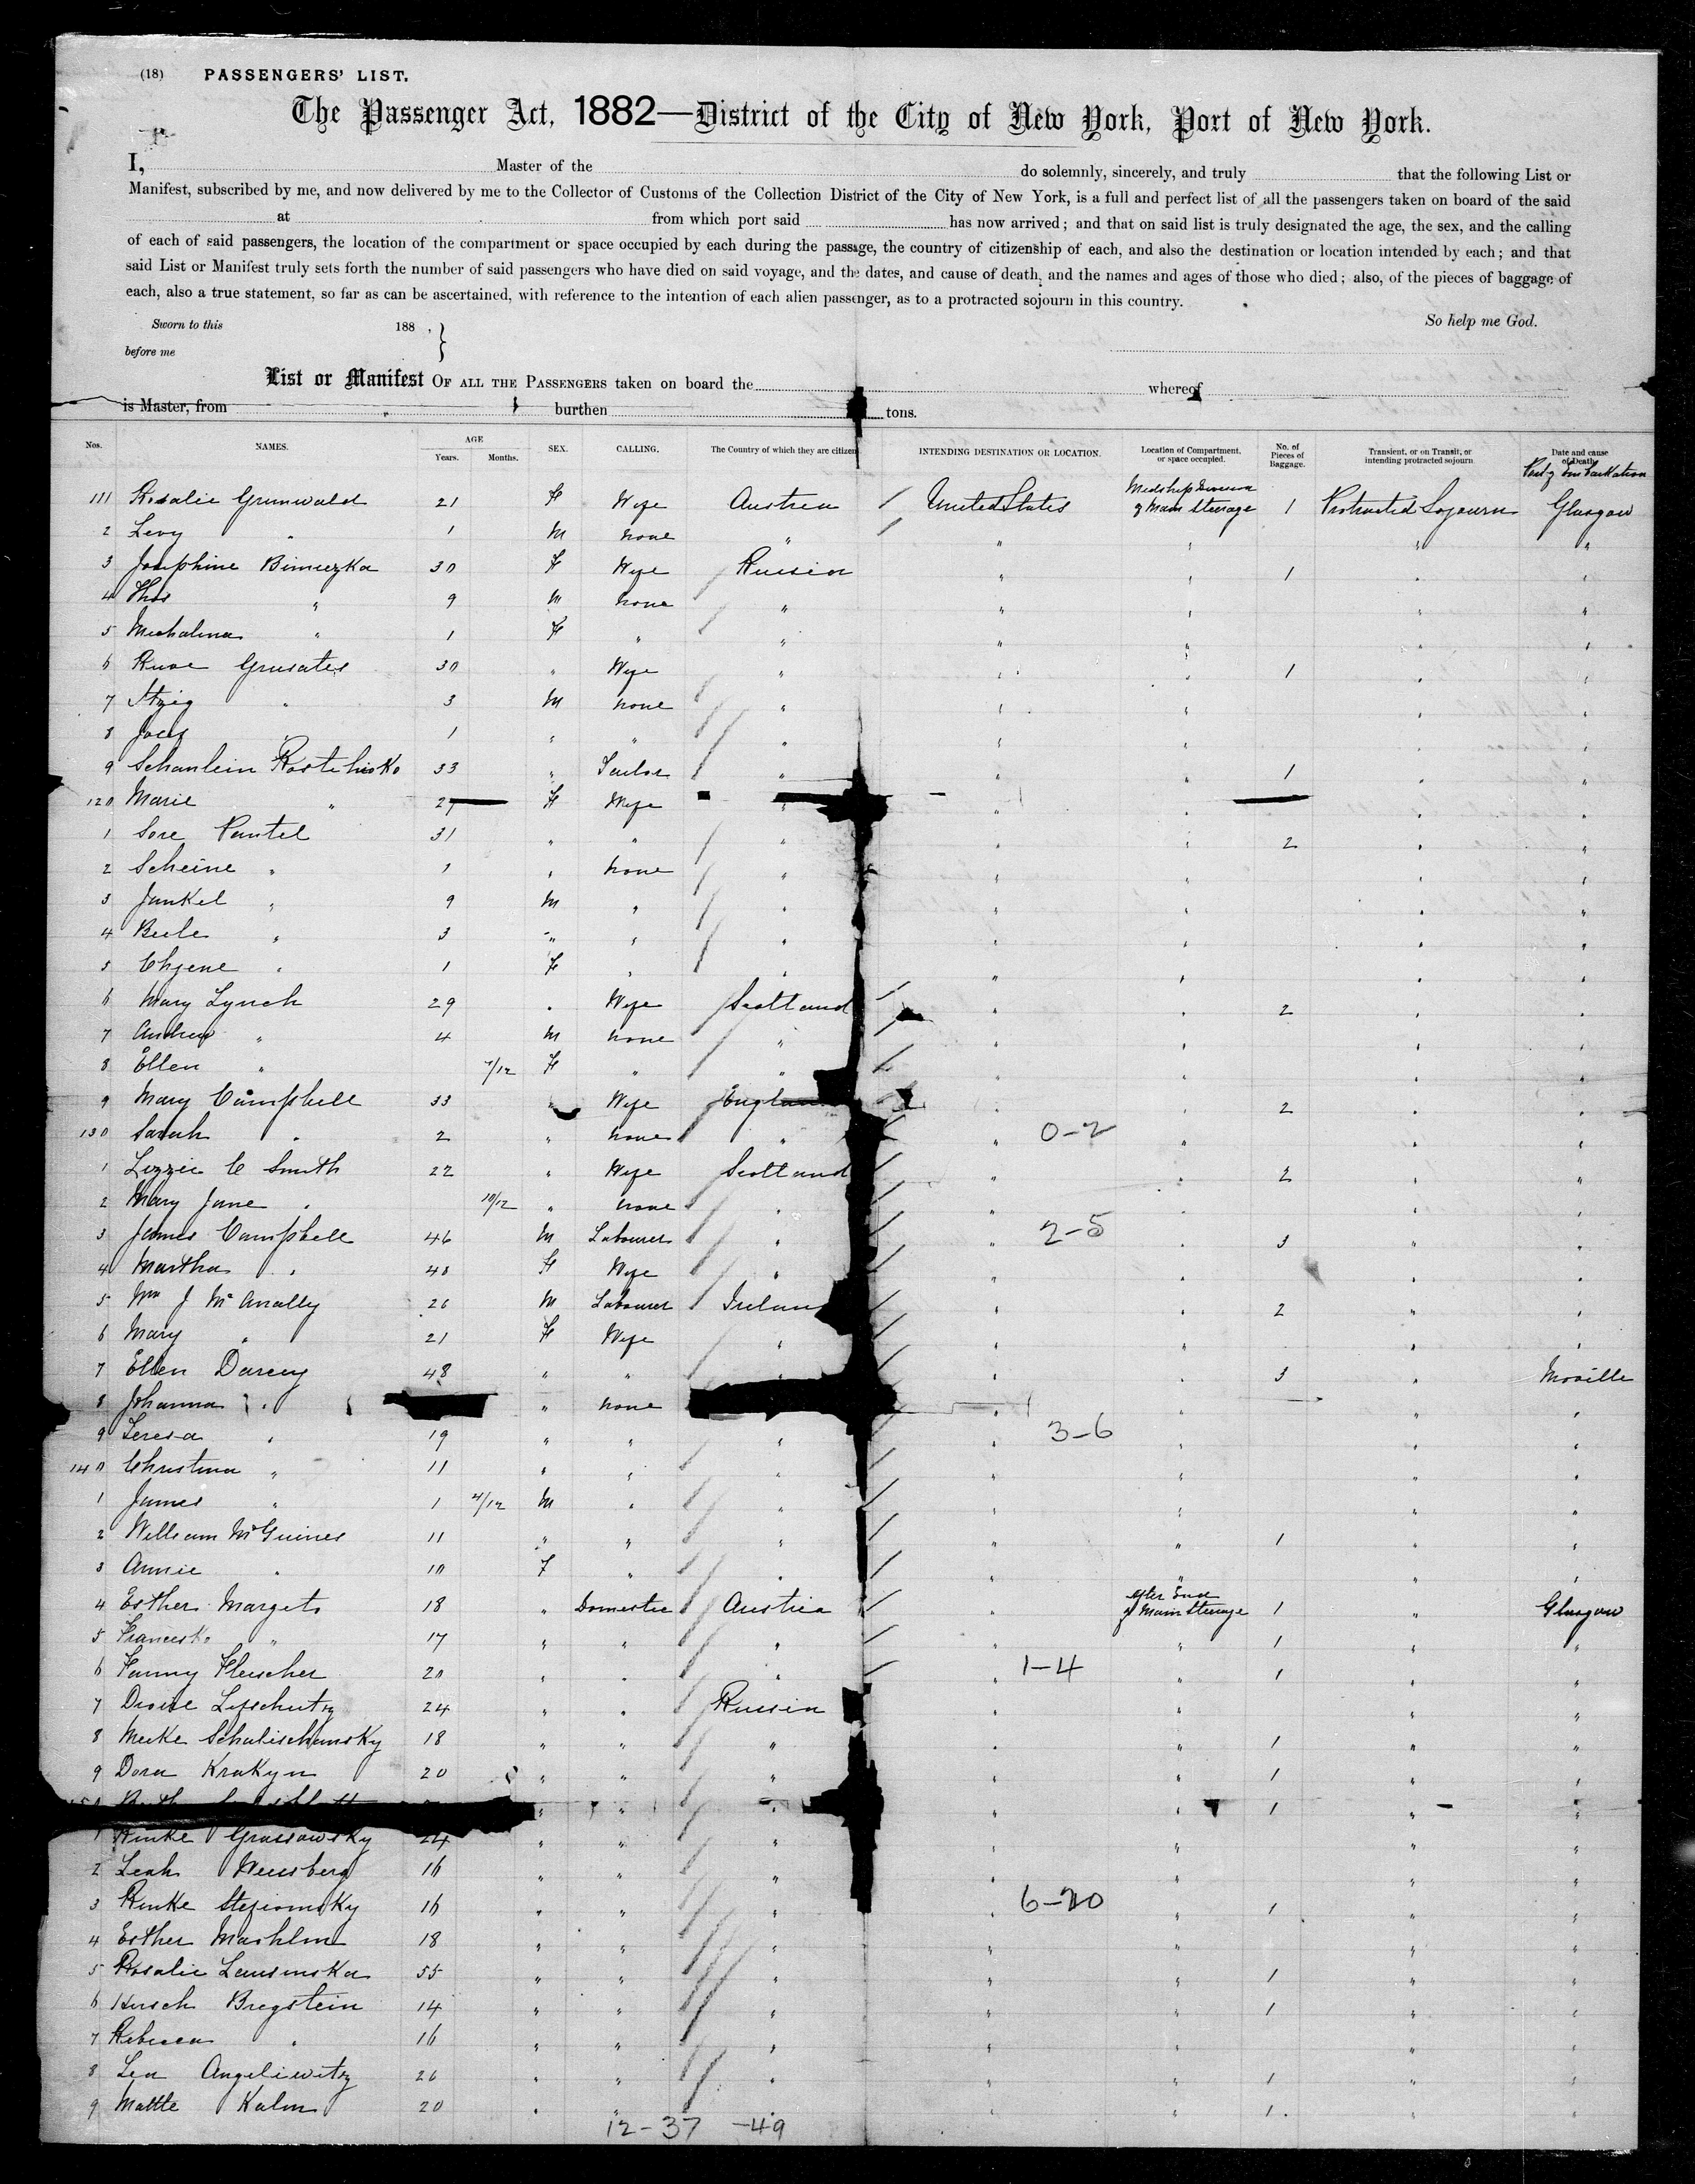 (18) PASSENGERS' LIST.
The Passenger Act, 1882—District of the City of New York, Port of New York.
I, Master of the do solemnly, sincerely, and truly that the following List or
Manifest, subscribed by me, and now delivered by me to the Collector of Customs of the Collection District of the City of New York, is a full and perfect list of all the passengers taken on board of the said
at from which port said has now arrived; and that on said list is truly designated the age, the sex, and the calling
of each of said passengers, the location of the compartment or space occupied by each during the passage, the country of citizenship of each, and also the destination or location intended by each; and that
said List or Manifest truly sets forth the number of said passengers who have died on said voyage, and the dates, and cause of death, and the names and ages of those who died; also, of the pieces of baggage of
each, also a true statement, so far as can be ascertained, with reference to the intention of each alien passenger, as to a protracted sojourn in this country.
So help me God.
Sworn to this 188 ,
before me
List or Manifest OF ALL THE PASSENGERS taken on board the whereof
is Master, from burthen tons.
Nos. NAMES. AGE Years. Months. SEX. CALLING. The Country of which they are citizen INTENDING DESTINATION OR LOCATION. Location of Compartment, or space occupied. No. of Pieces of Baggage. Transient, or on Transit, or intending protracted sojourn Date and cause of Death
Port of Embarkation
111 Rosalie Grunwald 21 F Wife Austria United States Midship Division of Main Steerage 1 Protracted Sojourn Glasgow
2 Levy " 1 M none " " " " "
3 Josephine 30 F Wife Russia " " 1 " "
4 Thos " 9 M none " " " " "
5 Michalina " 1 F " " " " " "
6 Grusates 30 " Wife " " " 1 " "
7 Itzig " 3 M none " " " " "
8 1 " " " " " " "
9 33 " Tailor " " " 1 " "
120 Marie " 27 F Wife " " " " "
1 Sore Pantel 31 " " " " " 2 " "
2 Scheine " 1 " none " " " " "
3 Jankel " 9 M " " " " " "
4 Beile " 3 " " " " " " "
5 " 1 F " " " " " "
6 Mary Lynch 29 " Wife Scotland " " 2 " "
7 Andrew " 4 M none " " " " "
8 Ellen " 7/12 F " " " " " "
9 Mary Campbell 33 " Wife England " " 2 " "
130 Sarah " 2 " none " " 0-2 " " "
1 Lizzie C Smith 22 " Wife Scotland " " 2 " "
2 Mary Jane " 10/12 " none " " " " "
3 James Campbell 46 M Labourer " " 2-5 " 3 " "
4 Martha " 48 F Wife " " " " "
5 Wm J McAnally 26 M Labourer Irelan " " 2 " "
6 Mary " 21 F Wife " " " " "
7 Ellen Darcey 48 " " " " " 3 " Moville
8 Johanna " " none " " " "
9 Teresa " 19 " " " " 3-6 " " "
140 Christina " 11 " " " " " " "
1 James " 1 4/12 M " " " " " "
2 William McGuines 11 " " " " " 1 " "
3 Annie " 10 F " " " " " "
4 Esther Margets 18 " Domestic Austria " After End of Main Steerage 1 " Glasgow
5 " 17 " " " " " 1 " "
6 Fanny Fleischer 20 " " " " 1-4 " 1 " "
7 Lifschutz 24 " " Russia " " " "
8 Meike 18 " " " " " 1 " "
9 Dora Krakyn 20 " " " " " 1 " "
" " " " " 1 " "
1 Rinke Grassowsky 24 " " " " " " "
2 Leah Weissberg 16 " " " " " " "
3 Rinke 16 " " " " 6-20 " 1 " "
4 Esther 18 " " " " " " "
5 Rosalie 55 " " " " " 1 " "
6 Hirsch Bregstein 14 " " " " " 1 " "
7 Rebecca " 16 " " " " " " "
8 Lea Angeliewitz 26 " " " " " 1 " "
9 Mattle Kalm 20 " " " " " 1 " "
12-37 -49